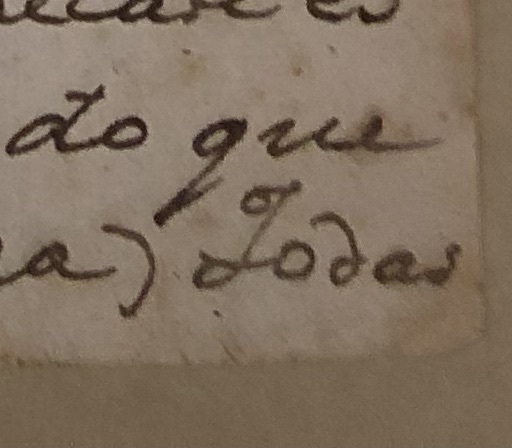 do que
a) todas